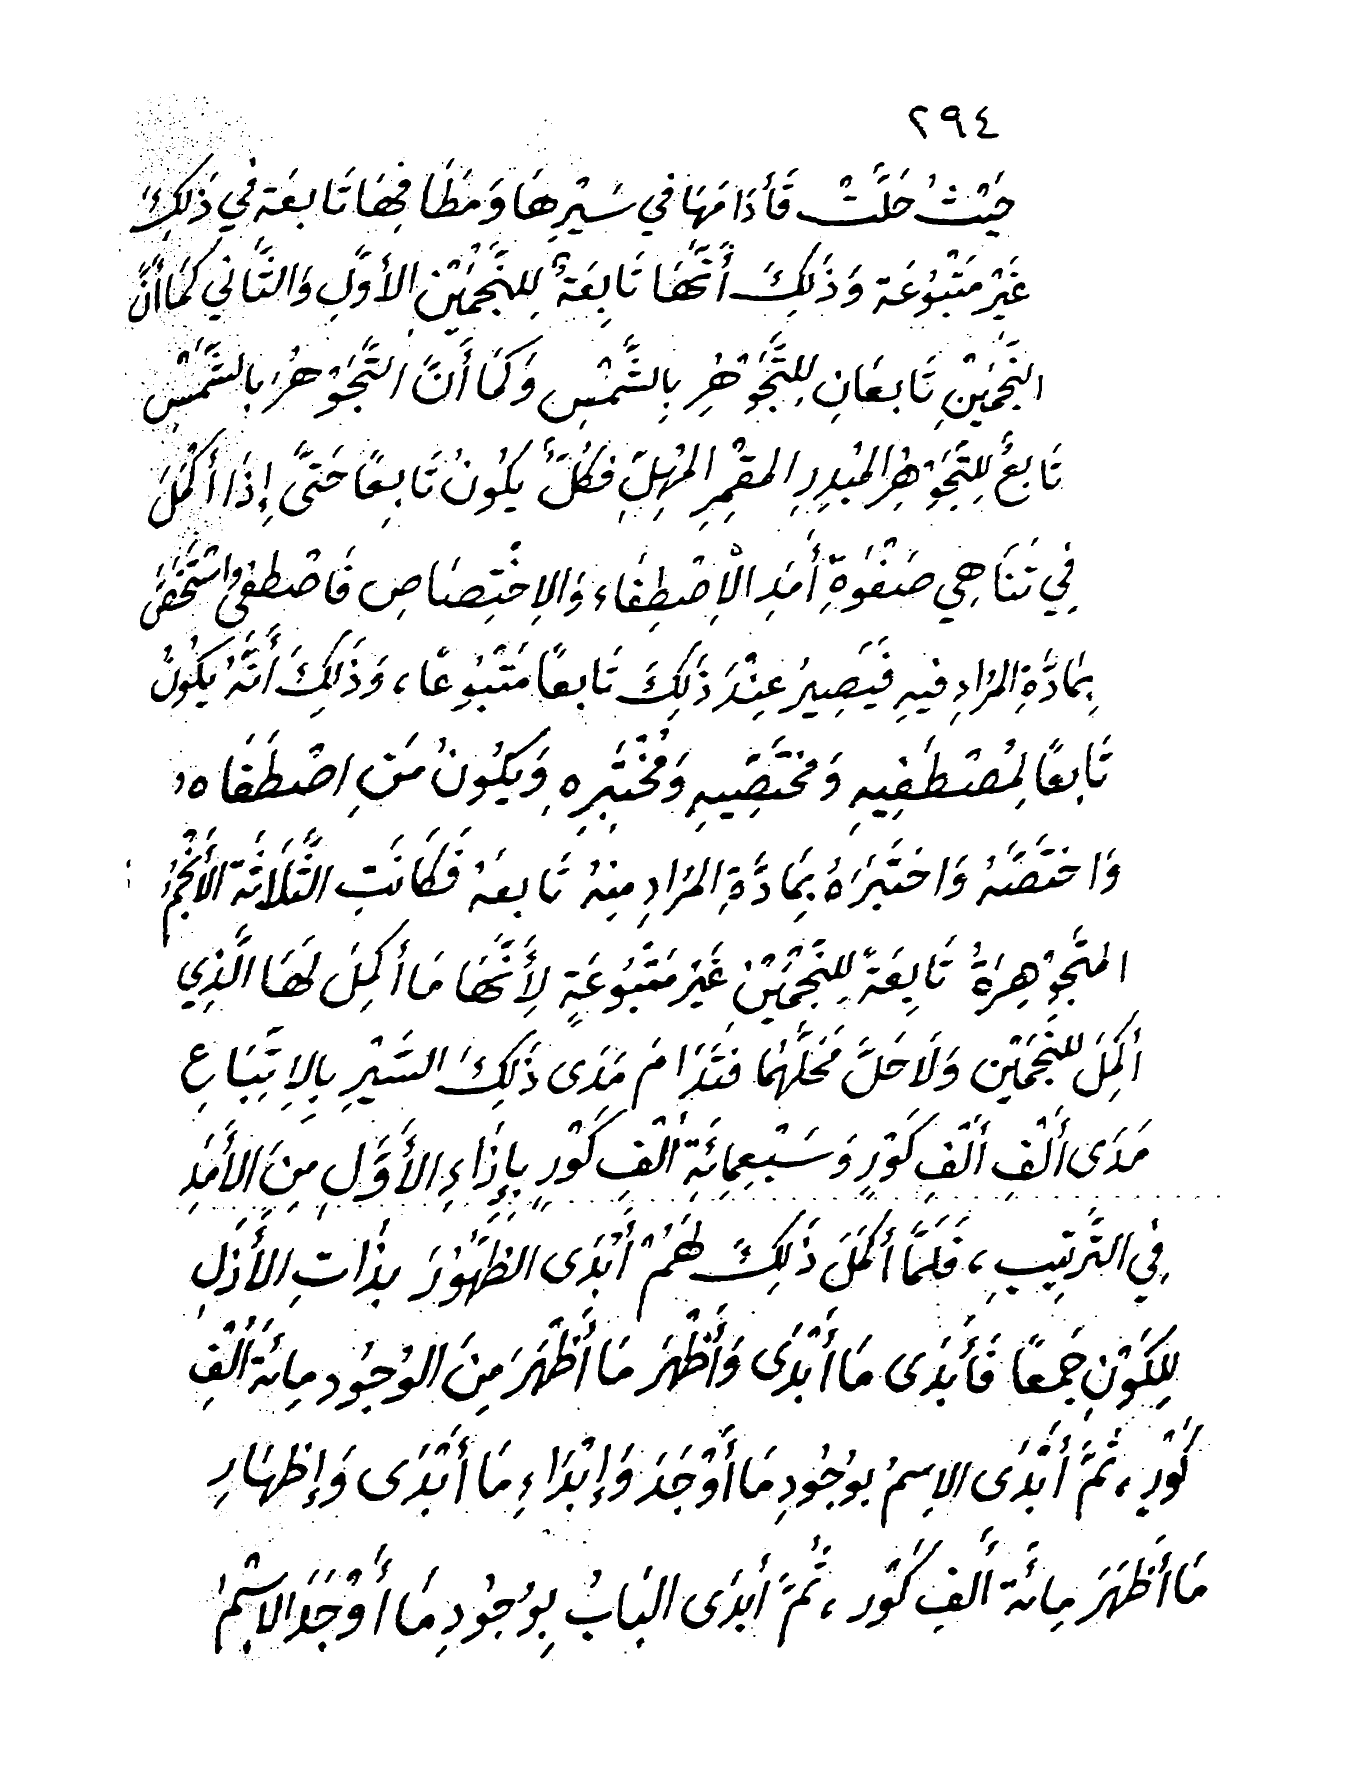 ٢٩٤
حَيْثُ حَلَّتْ فَأَدَامَهَا في سَيْرِهَا وَمَطَافِهَا تَابعَة في ذَلِكَ
غَيْر مَتْبُوُعَة وَذَلِكَ أَنَّهَا تَابِعَةٌ لِلنَّجْمَيْنِ الأوَّلِ وَالثَّاني كَمَا أَنَّ
النَّجْمَيْنِ تَابعَانِ لِلتَّجَوْهُرِ بِالشَّمْسِ وَكَمَا أَنَّ التَّجَوْهُرَ بِالشَّمْسِ
تَابعٌ لِلتَّجَوْهُرِ المُبْدِرِ المقْمِرِ المُهِلِّ فَكُلٌّ يَكُونُ تَابِعًا حَتَّى إِذَا أكْمَلَ
فِي تَنَاهِي صَفْوَةِ أَمَدِ الْاِصْطِفَاء وَالاِخْتِصَاصِ فَاصْطفى وَاسْتَخَصَّ
بِمَادَّةِ المرَادِ فيهِ فَيَصِيرُ عِنْدَ ذَلِكَ تَابعاً مَتْبُوعًا، وَذَلِكَ أَنَّهُ يَكُونُ
تَابعاً لِمُصْطَفِيهِ وَمخْتَصِّيهِ وَمُخْتَبِرِهِ وَيَكُونُ مَنِ اصْطَفَاهُ
وَاختَصَّهُ وَاختَبَرَاهُ بِمَادَّةِ المرَادِ مِنهُ تَابعهُ فَكَانَتِ الثَّلَاثَة الأَنْجُمُ
المتَجَوْهِرَةُ تَابِعَةً لِلنَّجْمَيْنِ غَيْر مَتْبُوُعَةٍ لِأَنَّهَا مَا أكمِلَ لَهَا الَّذِي
أكمِلَ لِلنَّجْمَيْنِ وَلَا حَلَّ مَحَلَّهُمَا فَتَدَامَ مَدَى ذَلِكَ السَّيْرِ بِالاِتِّبَاعِ
مَدَى أَلْفِ أَلْفِ كَوْرٍ وَسَبْعِمِائَةِ أَلْفِ كَوْرٍ بِإِزَاءِ الأَوَّلِ مِنَ الأَمَدِ
فِي التَّرتِيبِ، فَلَمَّا أكْمَلَ ذَلِكَ لَهُمْ أَبْدَى الظهُورَ بذَاتِ الأَزَلِ
لِلكَوْنِ جَمعًا فَأَبدَى مَا أَبْدَى وَأَظْهَرَ مَا أَظْهَرَ مِنَ الوُجُودِ مِائَة أَلْفِ
كَوْرٍ، ثُمَّ أَبْدَى الاِسمُ بوُجُودِ مَا أَوْجَدَ وَإِبْدَاءِ مَا أَبْدَى وَإِظهَارِ
مَا أَظْهَرَ مِائَة أَلفِ كَوْر، ثُمَّ أَبدَى البَابُ بِوُجُودِ مَا أَوْجَدَ الاِسْمُ